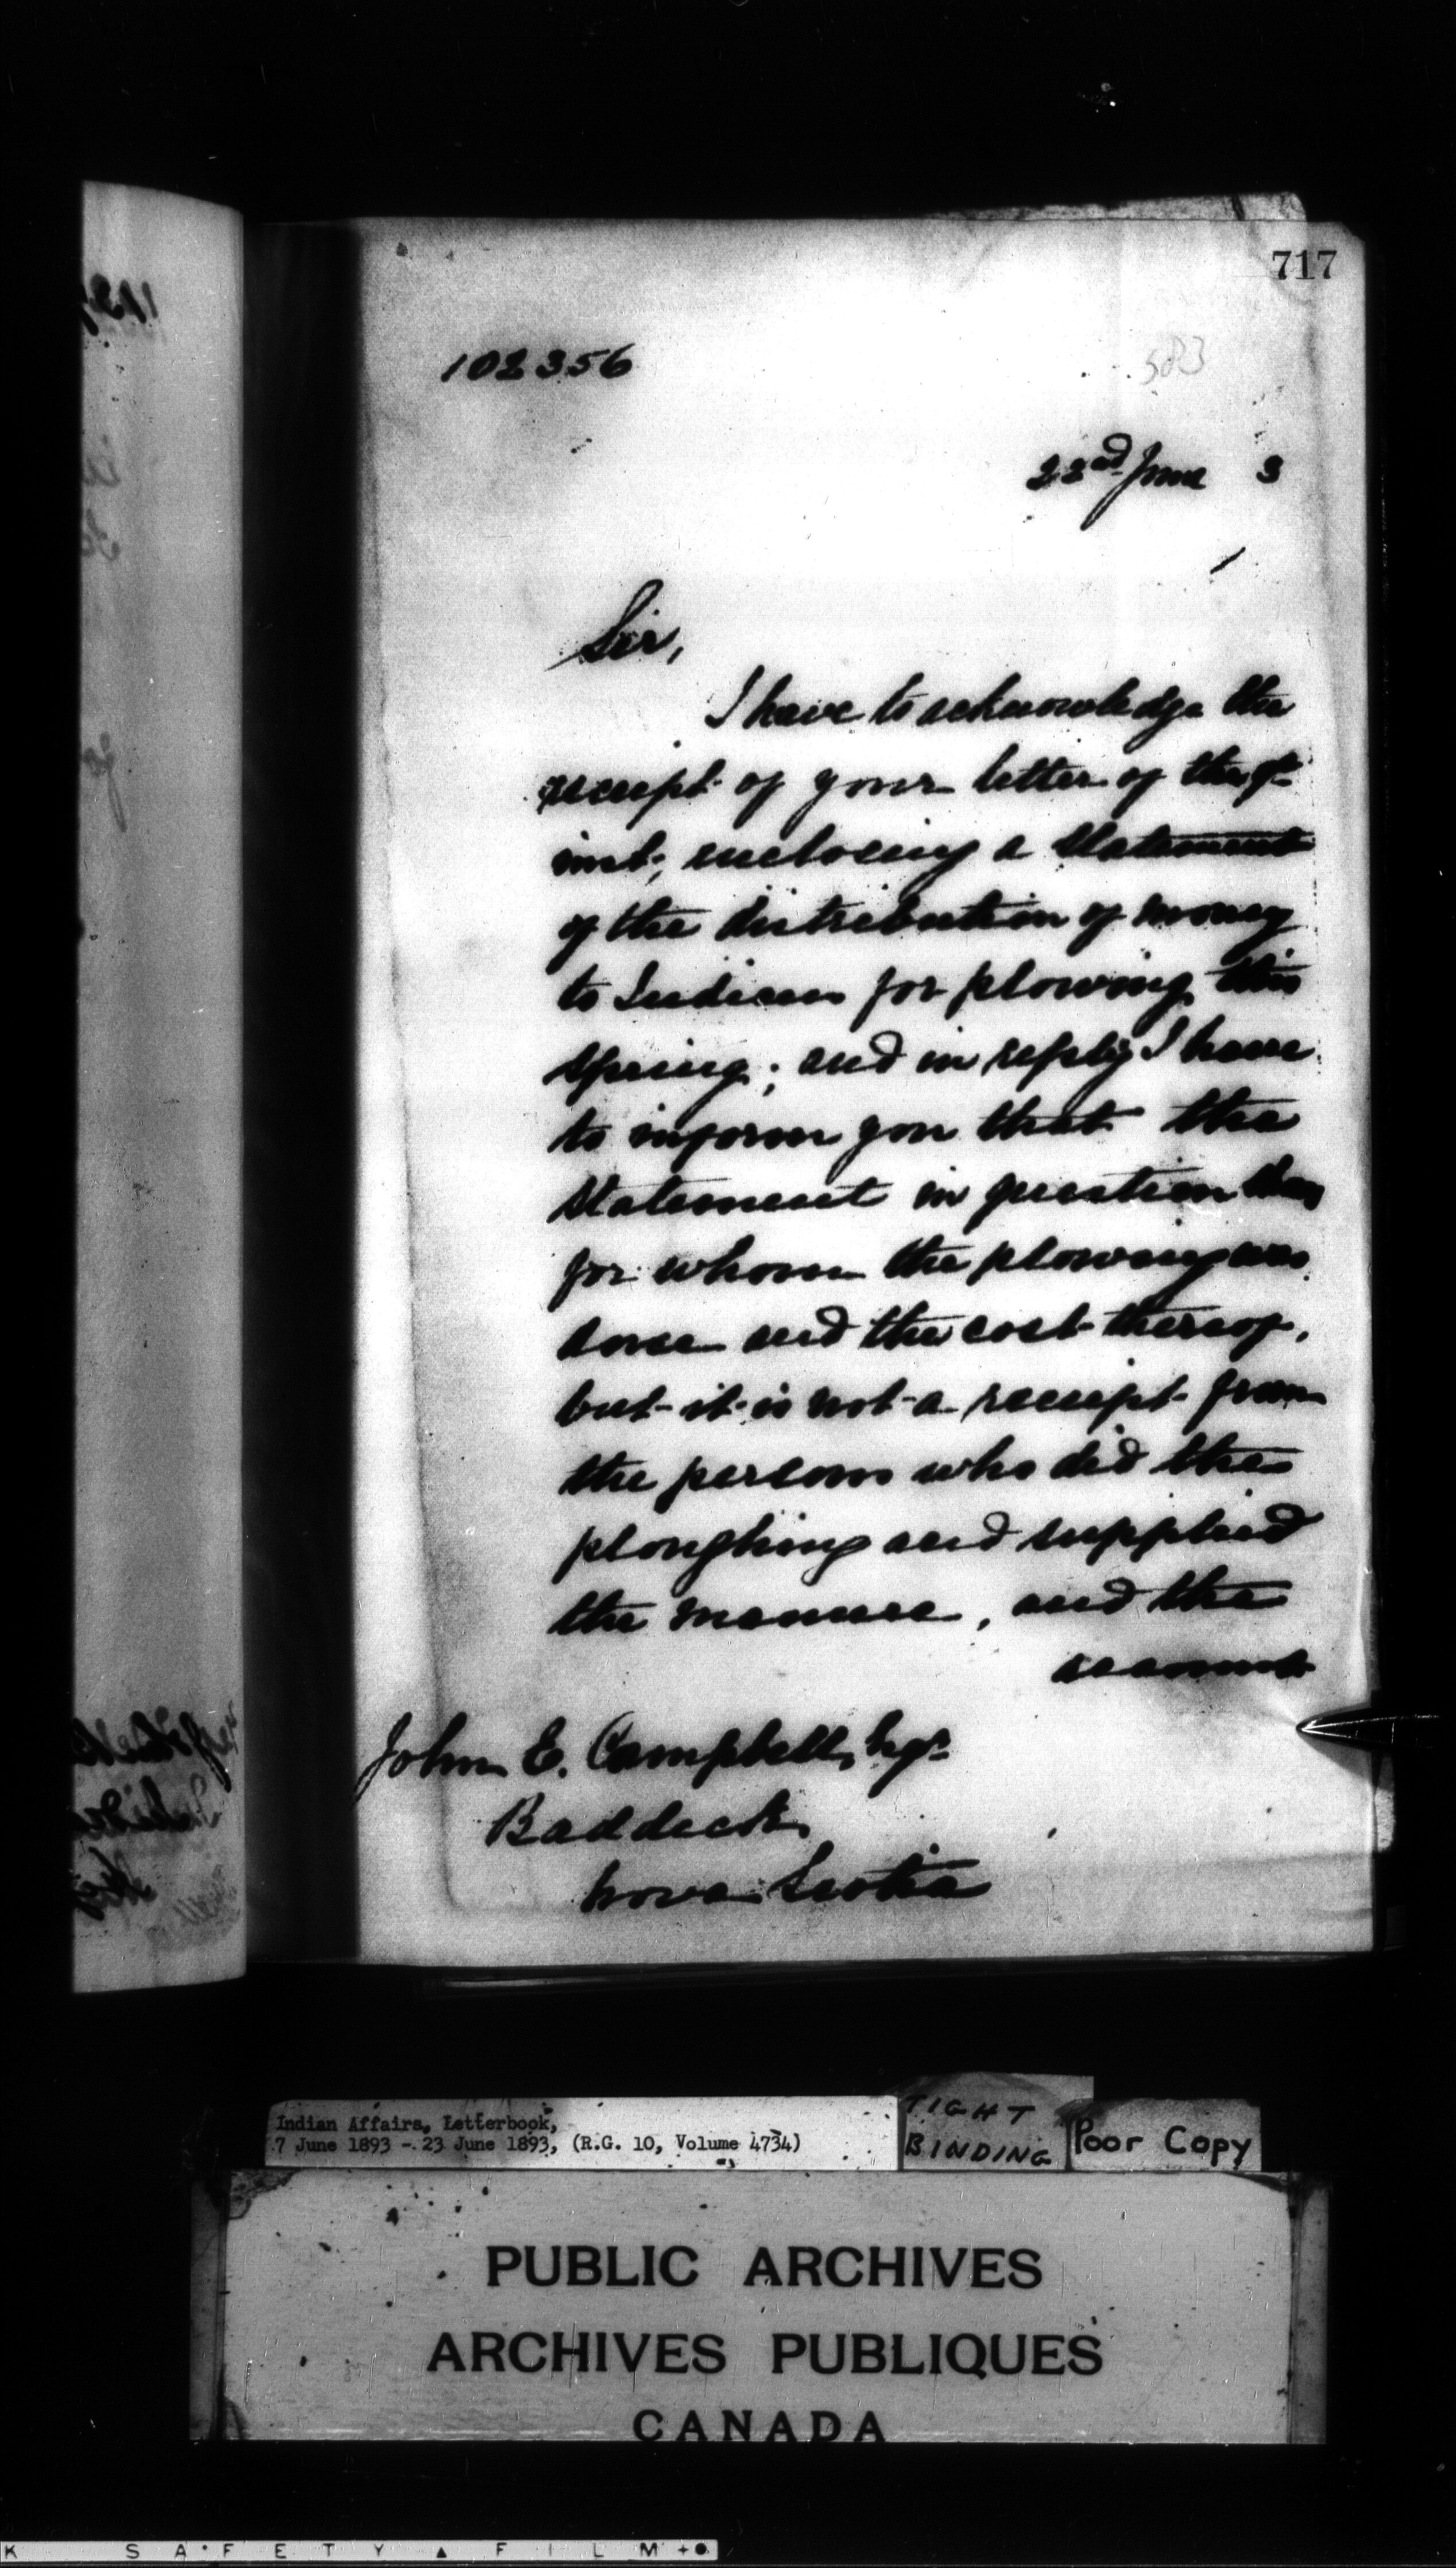 717
102356
583
22nd June 3
Sir,
I have to acknowledge the
receipt of your letter of the
inst; enclosing a statement
of the distribution of money
to Indians for plowing this
spring; and in reply I have
to inform you that the
statement in question
for whom the plowing was
done and the cost thereof,
but it is not a receipt from
the persons who did the
ploughing and supplied
the manure, and the
John E. Campbell, Esqr
Baddeck,
Nova Scotia
Indian Affairs, Letterbook,
7 June 1893 - 23 June 1893, (R.G. 10, Volume 4734)
TIGHT
BINDING
Poor Copy
PUBLIC ARCHIVES
ARCHIVES PUBLIQUES
CANADA
K SAFETY ▲ FILM +●